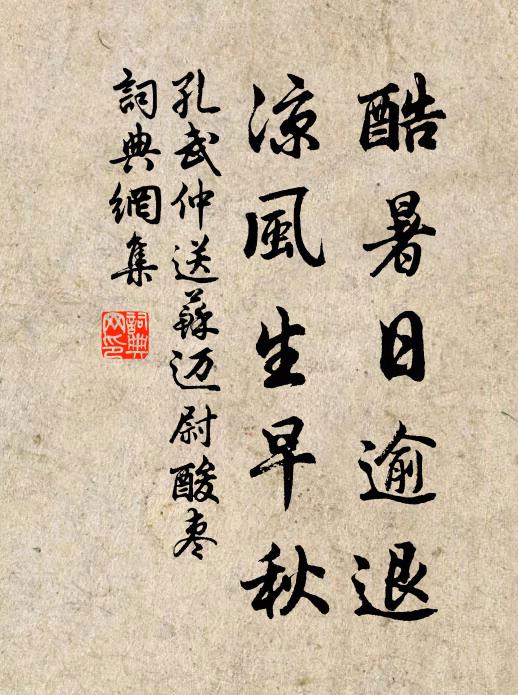 酷暑日逾退
凉風生早秋
孔武仲送蘇迈尉酸枣
詞典網集
詞典网印